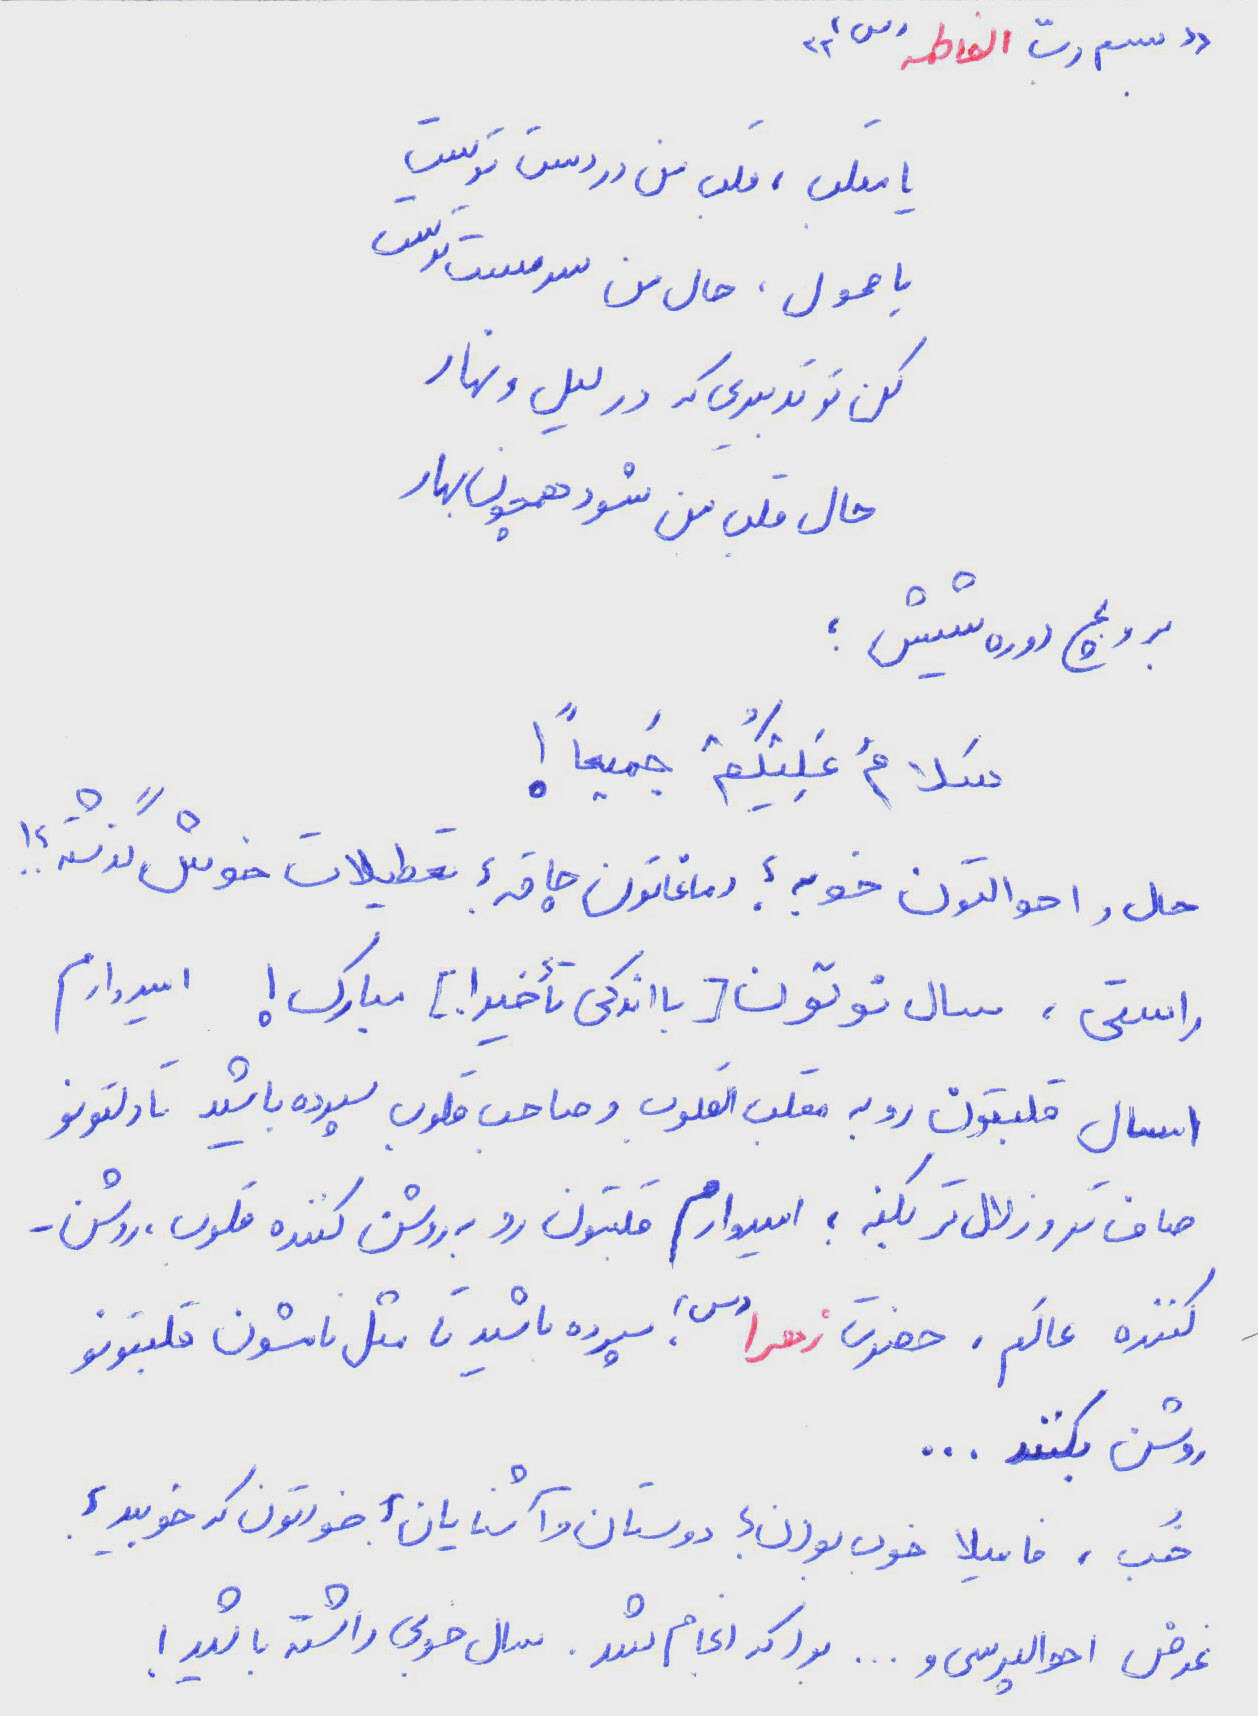 «بسم ربّ الفاطمه (س)»
یا مقلب، قلب من در دست توست
یا محول، حال من سرمست توست
کن تو تدبیری که در لیل و نهار
حال قلب من شود همچون بهار
بر و بچ دوره شیش؛
سَلامٌ عَلَیْکُمْ جَمیعاً!
حال و احوالتون خوبه؟ دماغاتون چاقه؟ تعطیلات خوش گذشته؟!
راستی، سال نوتون [با اندکی تأخیر!] مبارک! امیدوارم
امسال قلبتون رو به مقلب القلوب و صاحب قلوب سپرده باشید تا دلتونو
صاف تر و زلال تر بکنه؛ امیدوارم قلبتون رو به روشن کننده قلوب، روشن-
کننده عالَم، حضرت زهرا (س)؛ سپرده باشید تا مثل نامشون قلبتونو
روشن بکنند ...
خُب، فامیلا خوب بودن؟ دوستان و آشنایان؟ خودتون که خوبید؟
غرض احوالپرسی و ... بود که انجام شد. سال خوبی داشته باشید!